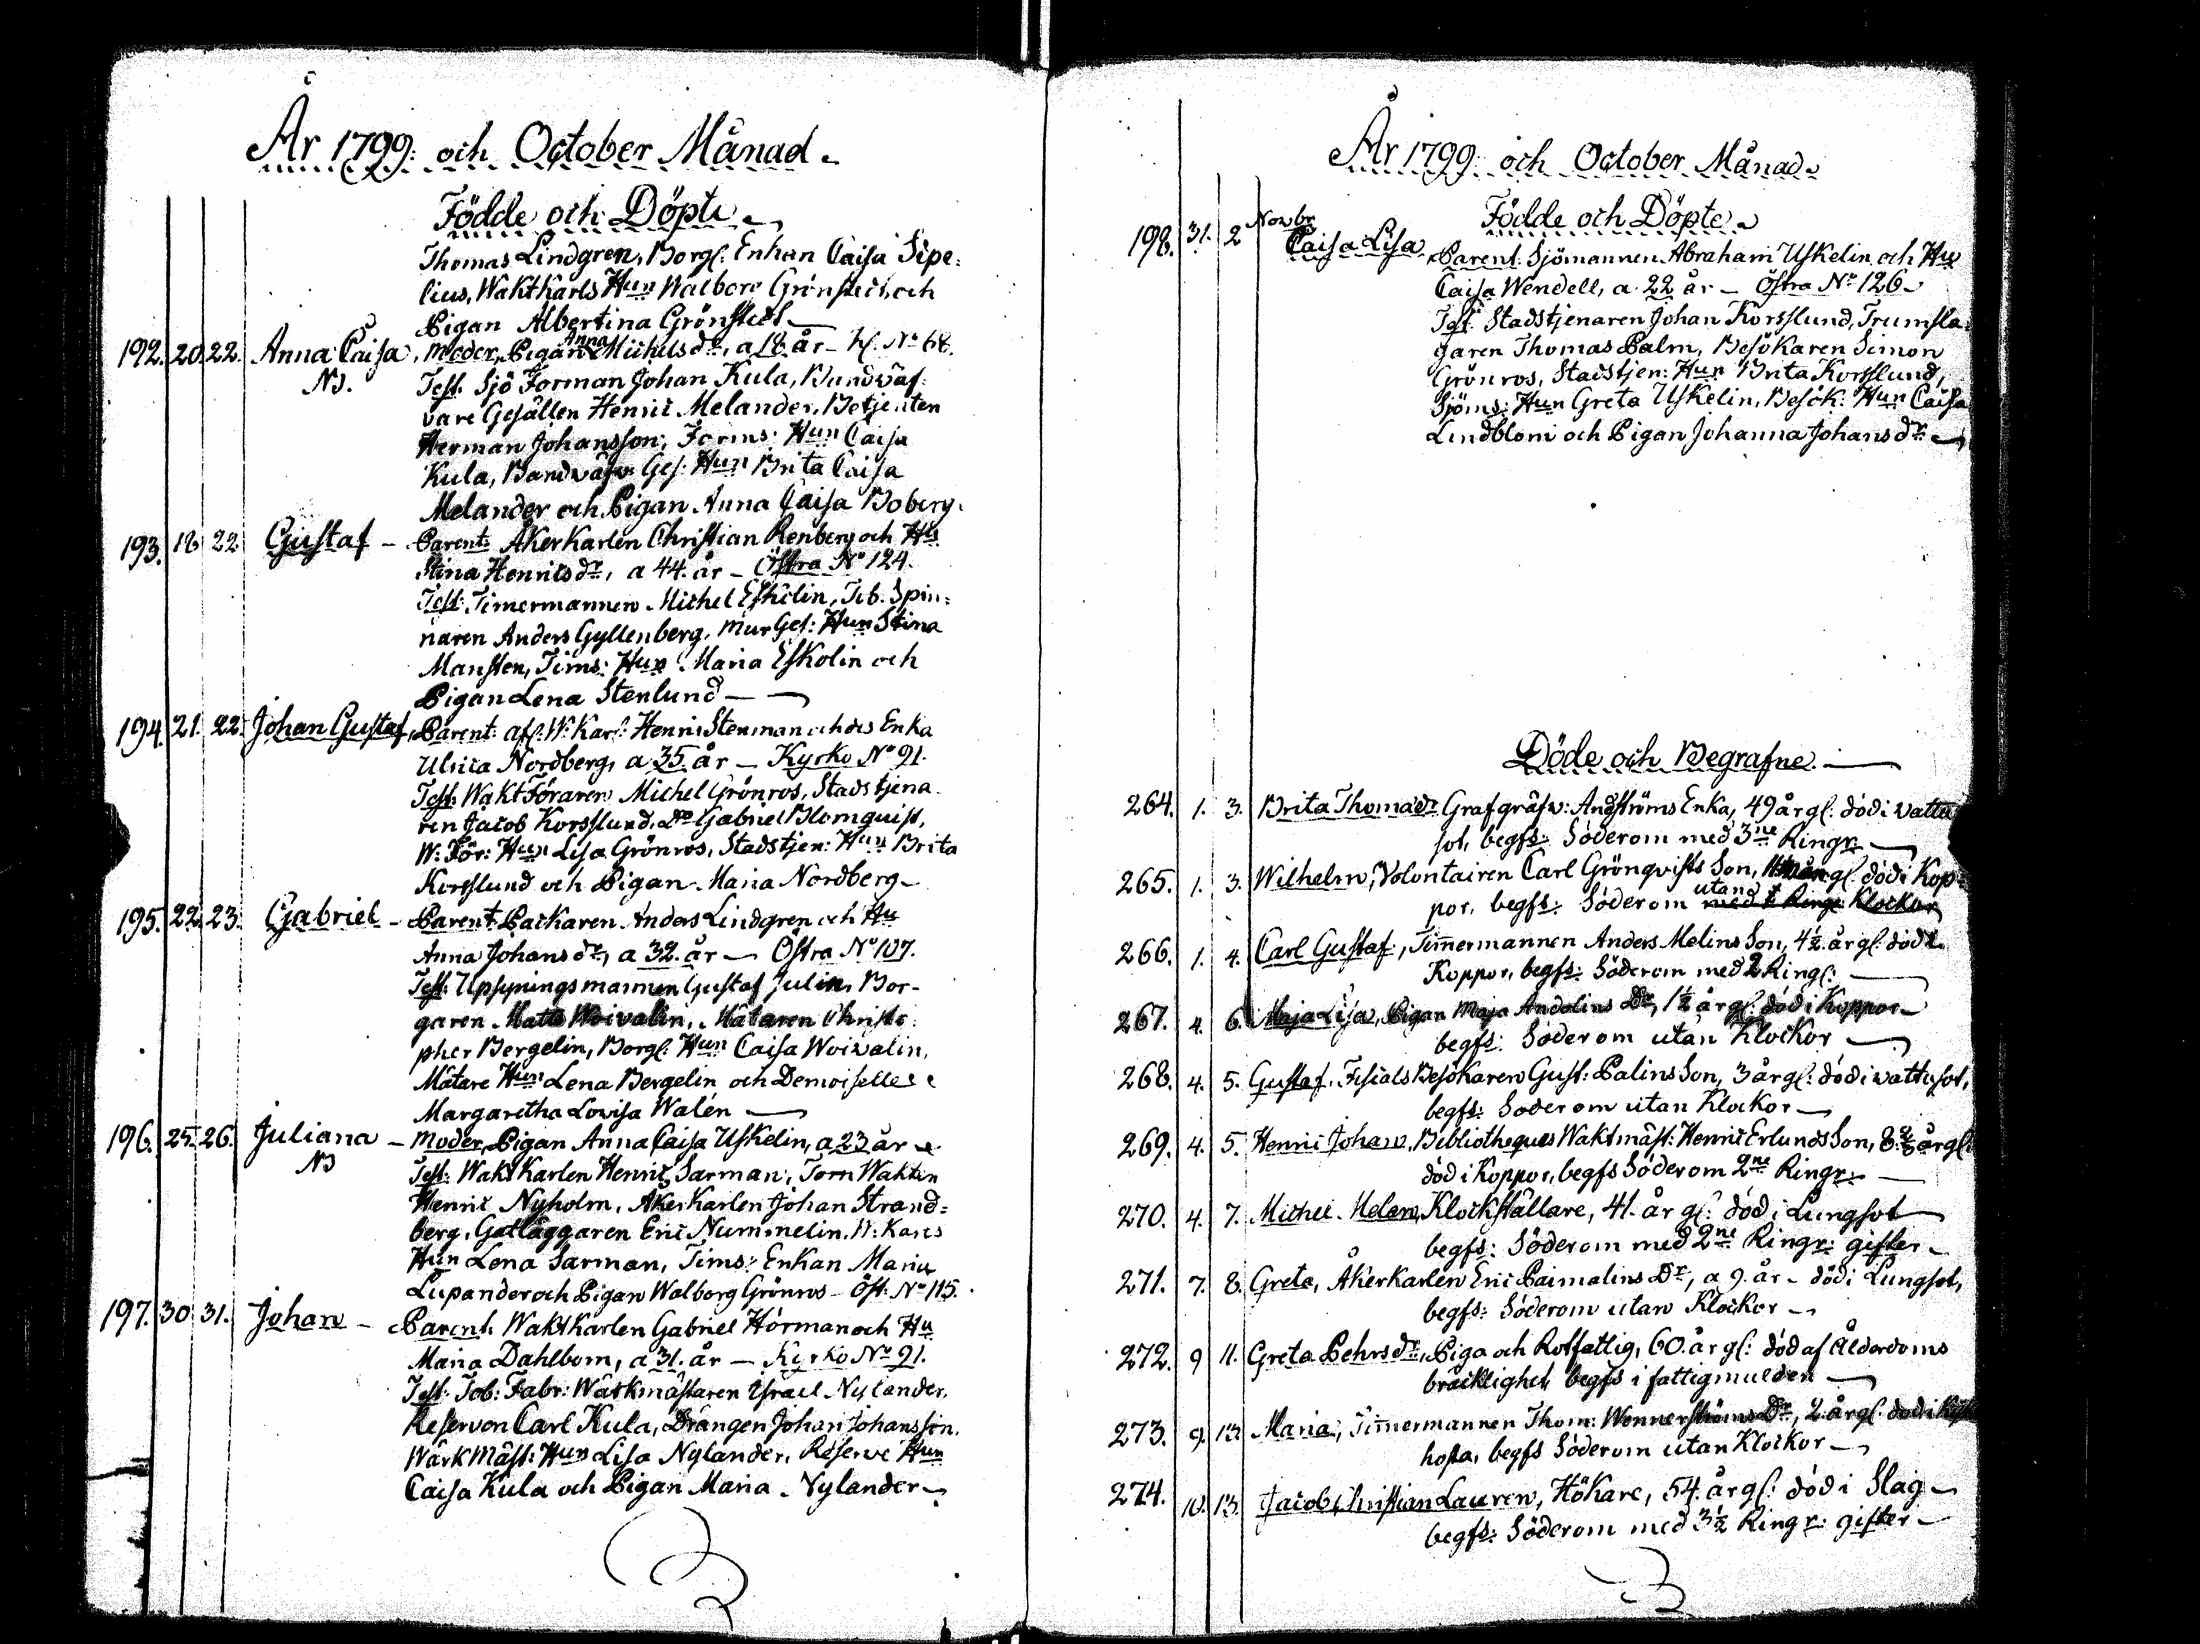 År 1799. och October Månad.
Födde och Döpte.
Thomas Lindgren, Borgl: Enkan Caisa Sipe=
lius, Waktkarls Hun Walborg Grönstedt och
Pigan Albertina Grönstedt
192. 20. 22. Anna Caisa, Moder, Pigan Anna Michelsdr, a 18. år - Kl. No 68.
NB. Test. Sjö Forman Johan Kula, Bandwäf:
vare Gesällen Henric Melander, Betjenten
Herman Johansson, Forms: Hun Caisa
Kula, Bandwäfv: Ges: Hun Brita Caisa
Melander och Pigan Anna Caisa Boberg.
193. 18. 22 Gustaf - Parent: Åkerkarlen Christian Renberg och Hu
Stina Henricsdr, a 44. år - Östra No 124.
Test: Timermannen Michel Eskolin, Tob: Spin=
naren Anders Gyllenberg, Mur Ges: Hun Stina
Mansten, Tims: Hun Maria Eskolin och
Pigan Lena Stenlund -
194. 21. 22. Johan Gustaf, Parent: afl. W: Karl: Henric Stenman och des Enka
Ulrica Nordberg, a 35. år - Kyrko No 91.
Test: Wakt Föraren Michel Grönros, Stadstjena
ren Jacob Korsslund, Do Gabriel Blomquist,
W: För: Hun Lisa Grönros, Stadstjen: Hun Brita
Korsslund och Pigan Maria Nordberg -
195. 22. 23. Gabriel - Parent: Packaren Anders Lindgren och Hu
Anna Johansdr, a 32. år - Östra No 107.
Test: Upsyningsmannen Gustaf Julin, Bor-
garen Matts Woivalin, Mätaren Christo:
pher Bergelin, Borgl: Hun Caisa Woivalin,
Mätare Hun Lena Bergelin och Demoiselle
Margaretha Lovisa Walén -
196. 25. 26. Juliana - Moder, Pigan Anna Caisa Uskelin, a 23 år
NB Test: Waktkarlen Henric Sarman, Torn Wakten
Henric Nyholm, Åkerkarlen Johan Strand=
berg, Gatläggaren Eric Nummelin, W: Karls
Hun Lena Sarman, Tims: Enkan Maria
Lupander och Pigan Walborg Grönros - Öst: No 115.
197. 30 31. Johan - Parent. Waktkarlen Gabriel Hörman och Hu
Maria Dahlbom, a 31. år - Kyrko No 91.
Test: Tob: Fabr: Wärkmästaren Israel Nylander,
Reserven Carl Kula, Drängen Johan Johansson,
Wärkmäst: Hun Lisa Nylander, Reserve Hun
Caisa Kula och Pigan Maria Nylander -
År 1799. och October Månad.
Födde och Döpte.
198. 31. 2 Novbr Caisa Lisa, Parent: Sjömannen Abraham Uskelin och Hu
Caisa Wendell, a 22 år - Östra No 126 -
Test: Stadstjenaren Johan Korsslund, Trumsla
garen Thomas Palm, Besökaren Simon
Grönros, Stadstjen: Hun Brita Korsslund,
Sjöms: Hun Greta Uskelin, Besök: Hun Caisa
Lindblom och Pigan Johanna Johansdr -
Döde och Begrafne.
264. 1. 3. Brita Thomædr Grafgräfv: Ångströms Enka, 49 år gl: död i wattu
sot, begfs: Söderom med 3ne Ringr -
265. 1. 3. Wilhelm, Volontairen Carl Grönqvists Son, gl. död i Kop=
por, begfs: Söderom utan Klockor
266. 1. 4. Carl Gustaf, Timmermannen Anders Melins Son, 4½ år gl: död i
Koppor, begfs: Söderom med 2 Ringr:
267. 4. 6. Maja Lisa, Pigan Maja Andolins Dr, 1½ år gl. död i Koppor -
begfs: Söderom utan Klockor
268. 4. 5. Gustaf, Fiscals Besökaren Gust: Palins Son, 3 år gl: död i wattusot,
begfs: Söderom utan Klockor -
269. 4. 5. Henric Johan, Bibliotheques Waktmäst: Henric Erlunds Son, 8. år gl:
död i Koppor, begfs Söderom 2ne Ringr: -
270. 4. 7. Michel Melan, Klockställare, 41. år gl: död i Lungsot
begfs: Söderom med 2ne Ringr: gifter -
271. 7. 8. Greta, Åkerkarlen Eric Paimalins Dr, a 9. år - död i Lungsot,
begfs: Söderom utan Klockor -
272. 9 11. Greta Pehrsdr, Piga och Rotfattig, 60. år gl: död af Ålderdoms
bräcklighet begfs i fattigmulden -
273. 9. 13. Maria, Timmermannen Thom: Wennerströms Dr, 2. år gl: död i Kik
hosta, begfs Söderom utan Klockor -
274. 10. 13. Jacob Christian Lauren, Hökare, 54. år gl: död i Slag -
begfs: Söderom med 3½ Ringr: gifter -